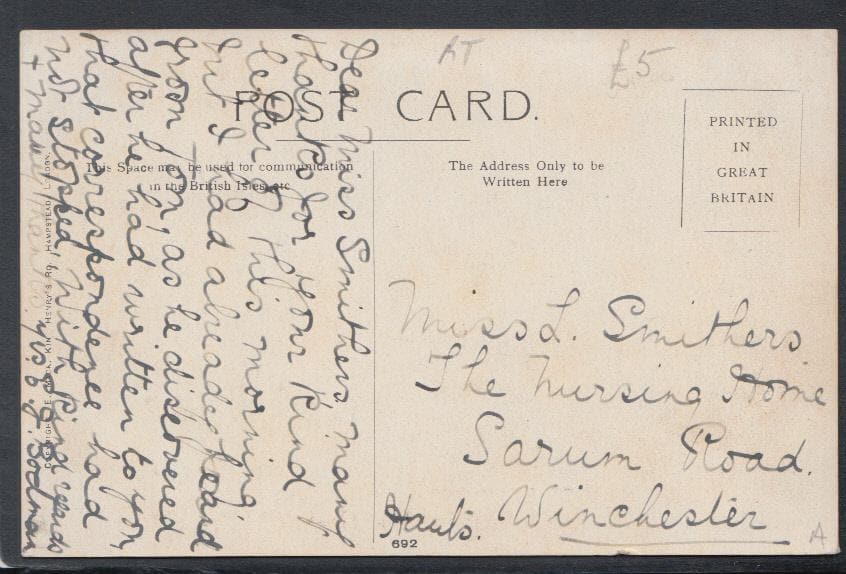 AT
£5
POST CARD.
This Space may be used for communication
in the British Isles, etc
The Address Only to be
Written Here
PRINTED
IN
GREAT
BRITAIN
Dear Miss Smithers many
thanks for your kind
letter of this morning
but I had already heard
from Tom, as he discovered
after he had written to you
that correspondence had
not stopped, with kind regards
+ many thanks yrs E. J. Bodman
Miss L. Smithers
The Nursing Home
Sarum Road.
Winchester
Hants.
692
A
HENRY'S RD. HAMPSTEAD, LONDON.